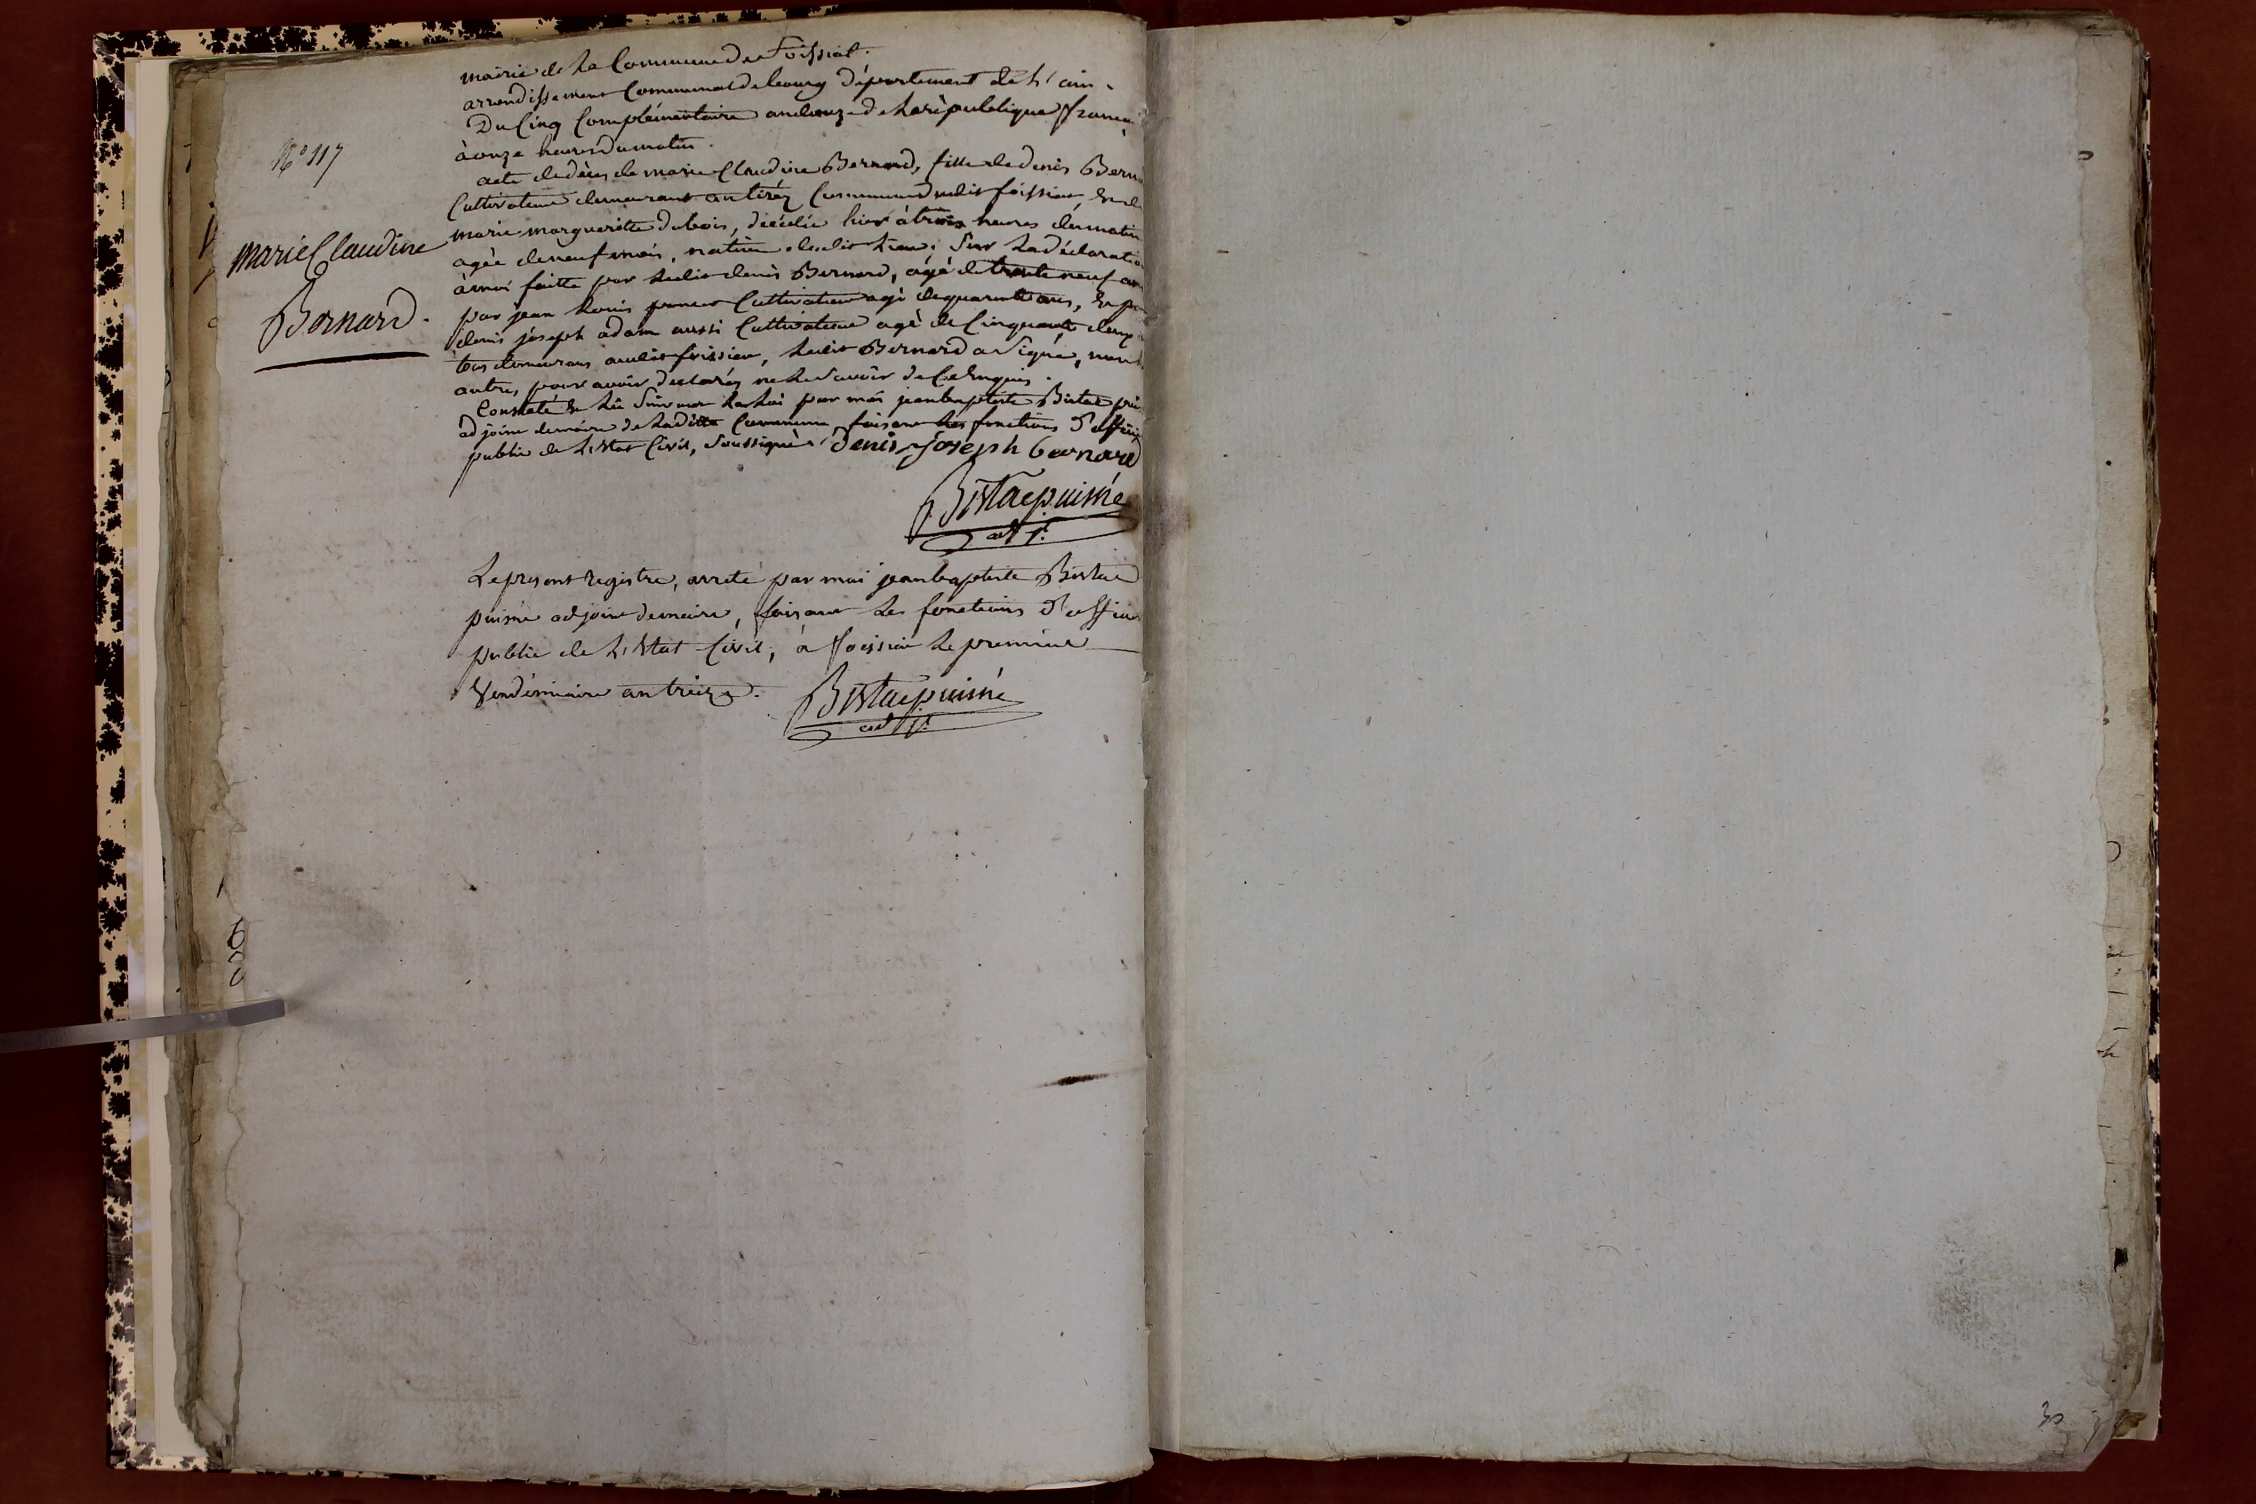 mairie de La Commune de Foissiat.
arrondissement Communal de bourg département de L'ain.
Du Cinq Complémentaire an douze de La république françai
à onze heures Du matin.
N° 117
acte de décès de marie Claudine Bernard, fille de denis Berna
Cultivateur demeurant en tiréz Commune dudit foissiat, et de
marie marguerite Dubois, décédée hier à trois heures du matin
agée de neuf mois, native dudit Lieu; Sur La déclaration
à moi faitte par Ledit denis Bernard, agé de trente neuf an
par jean Louis Cultivateur agé de quarante ans, et par
denis joseph adam aussi Cultivateur agé de Cinquante deux
tous demeurans audit foissiat, Ledit Bernard a Signé, non Les
autres, pour avoir déclarés ne Le Savoir de Ce Enquis.
Marie Claudine
Bernard.
Constaté et Lû Suivant La Loi par moi jean baptiste Bistac pui
adjoint de maire de Laditte Commune, faisant Les fonctions D'officier
public de L'Etat Civil, Soussigné. denis joseph bernard
Bistac puisné
adj.t
Le present Registre, arreté par moi jean baptiste Bistac
puisné adjoint de maire, faisant Les fonctions D'officier
public de L'Etat Civil, à foissiat Le premier
Vendémiaire an treize. Bistac puisné
adj.t
30